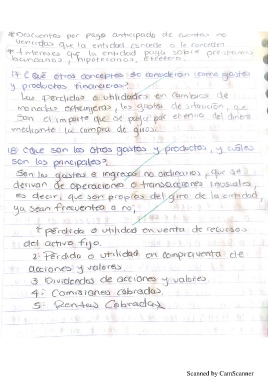 *Descuentos por pago anticipado de cuentas no
vencidas que la entidad concede o le conceden
*Intereses que la entidad paga sobre prestamos
bancarios, hipotecarios, etcetera.
17 ¿Qué otros conceptos se consideran como gastos
y productos financieros?
Las Perdidas o utilidades en cambios de
monedas extranjeras, los gastos de situación, que
son el importe que se paga por el envio del dinero
mediante la compra de giros.
18 ¿Que son los otros gastos y productos, y cuáles
son los principales?
Son los gastos e ingresos no ordinarios, que se
derivan de operaciones o transacciones inusuales,
es decir, que son propios del giro de la entidad,
ya sean frecuentes o no,
1 perdida o utilidad en venta de recursos
del activo fijo.
2. Perdida o utilidad en compraventa de
acciones y valores.
3 Dividendos de acciones y valores.
4. Comisiones cobradas.
5. Rentas Cobradas
Scanned by CamScanner